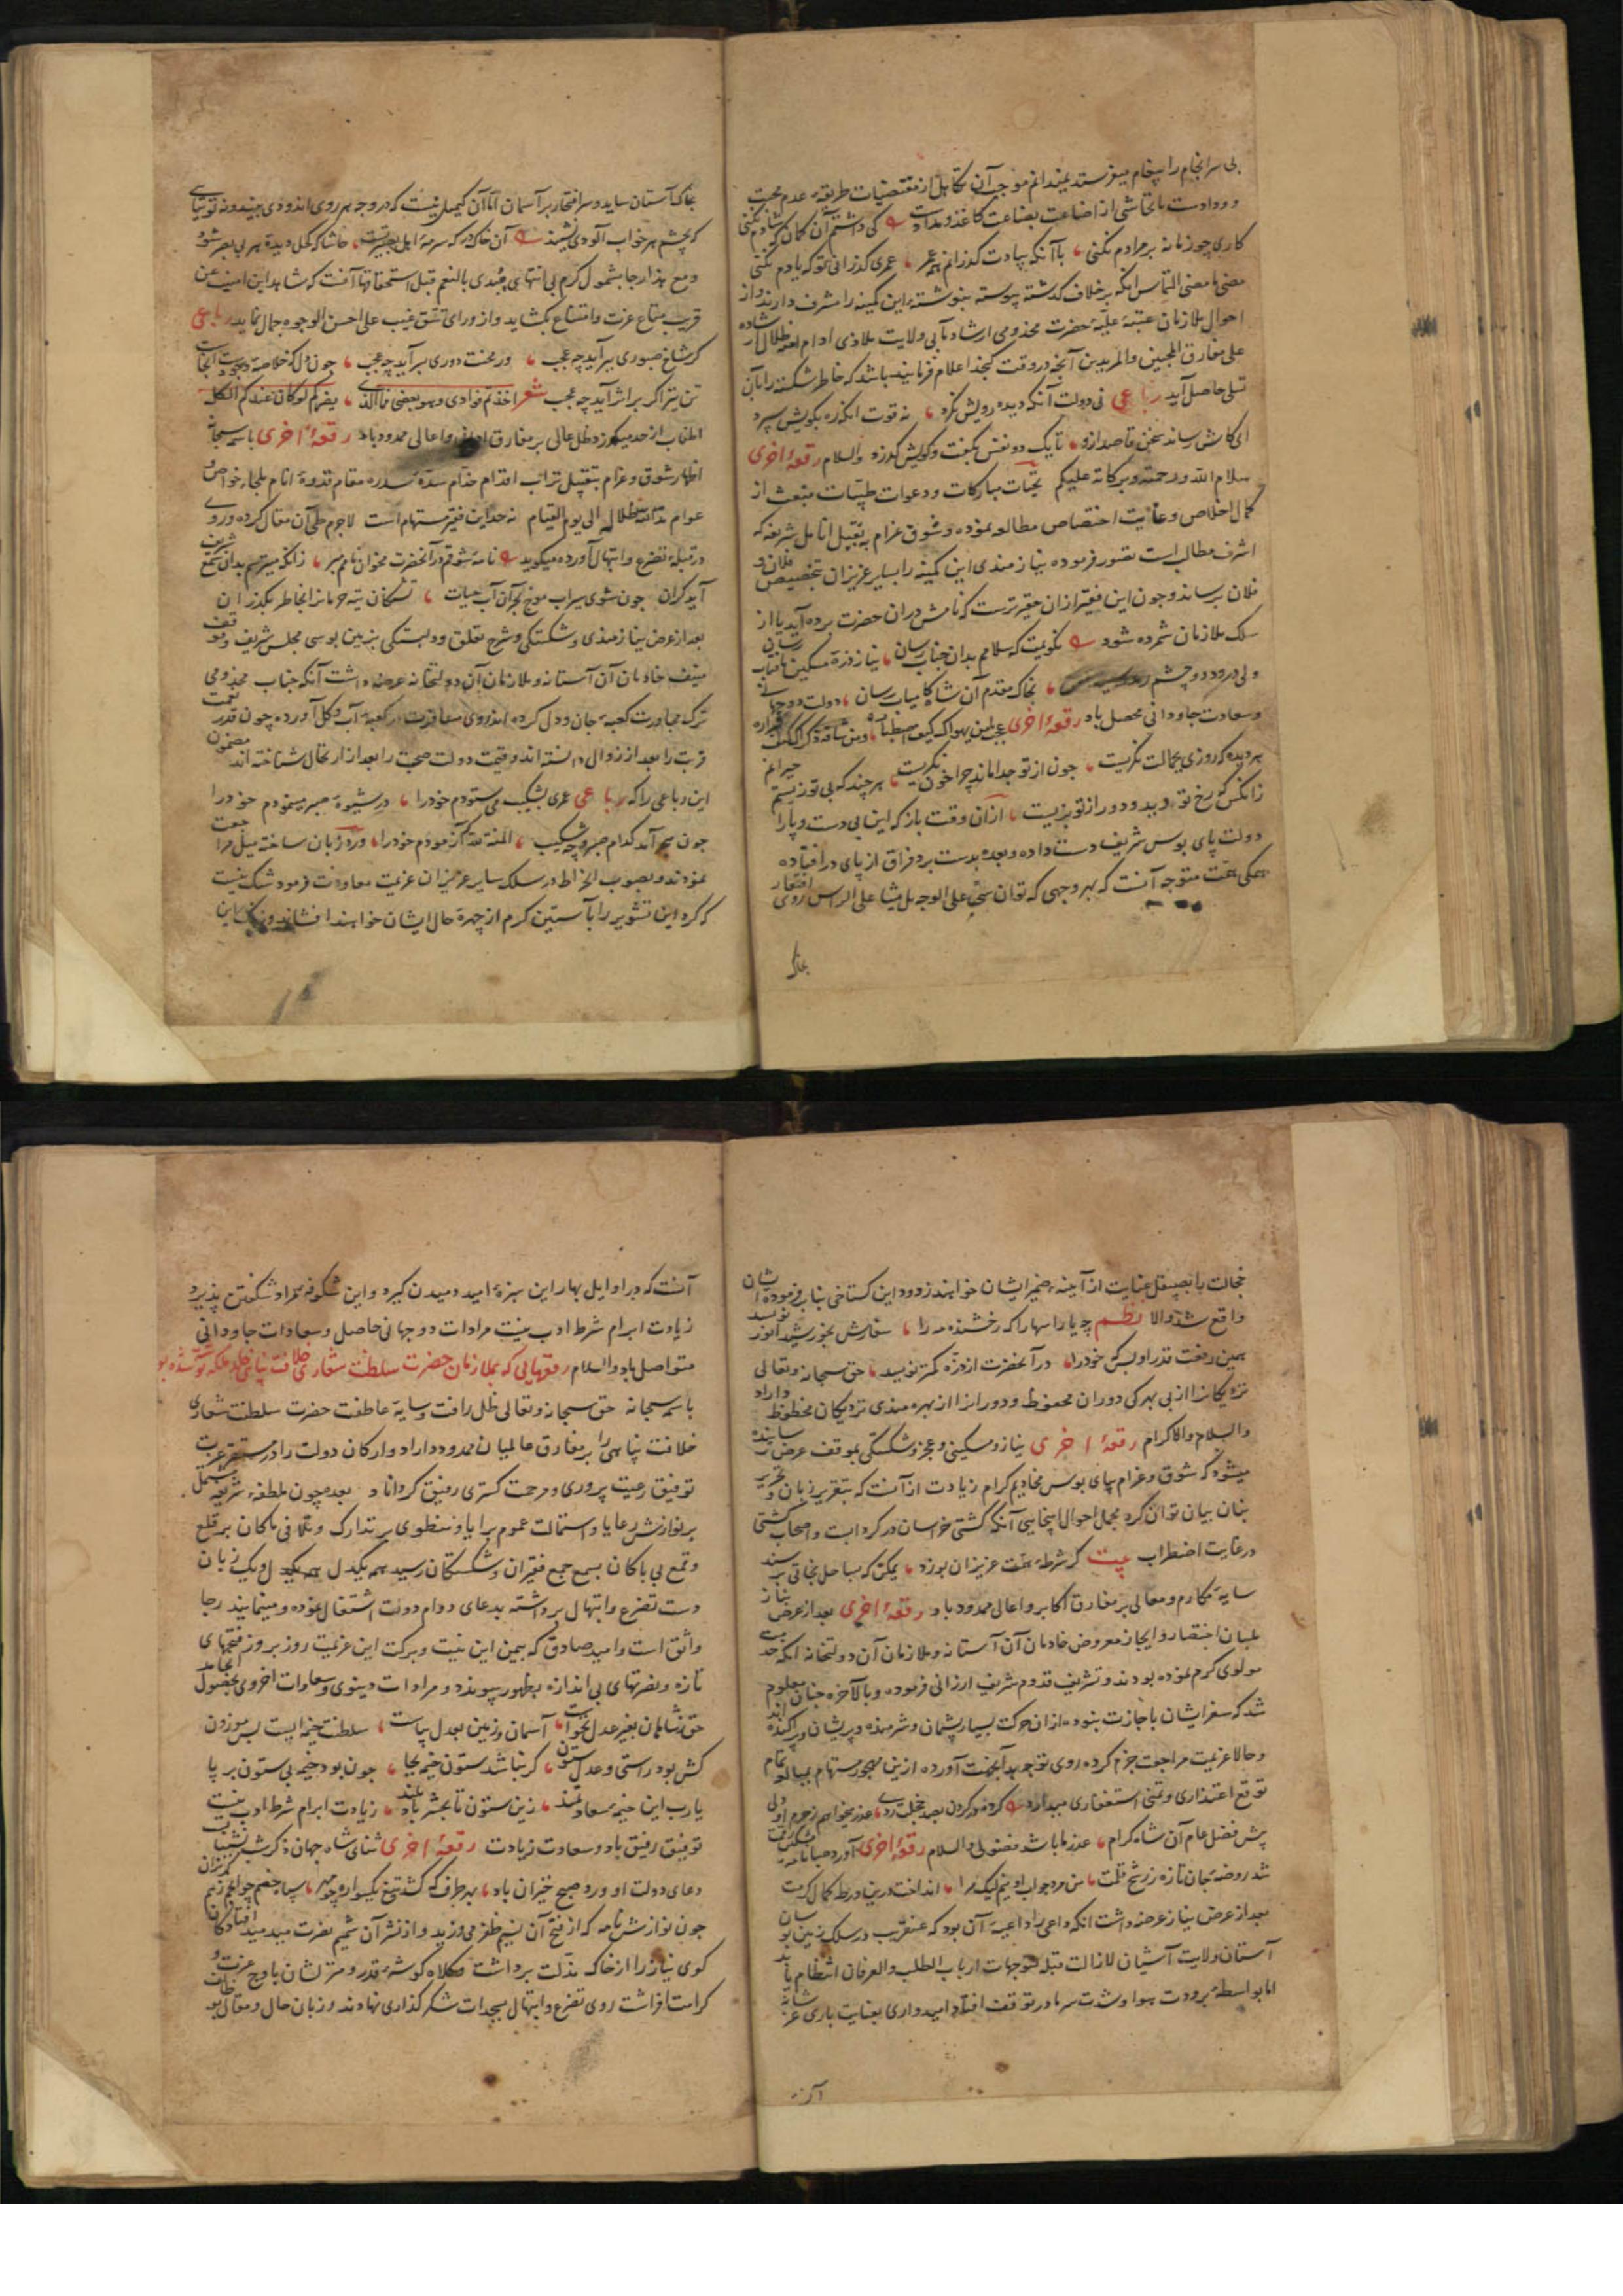 بی سرانجام را پیغام میفرستد نمیدانم موجب آن تکاهل از مقتضیات طریقه عدم محبت
و ودادست یا تحاشی از اضاعت بضاعت کاغذ و مداد کی داشتم آن کمان که شادم نکنی
کاری چو زمانه بر مرادم نکنی با آنکه بیادت گذرانم همه عمر عمری گذرانی تو که یادم نکنی
مضی ما مضی التماس آنکه بر خلاف گذشته پیوسته بنوشته این کمینه را مشرف دارند و از
احوال ملازمان عتبه علیه حضرت مخدومی ارشاد مآبی ولایت ملاذی ادام الله ظلال ارشاده
علی مفارق المحبین والمریدین آنچه در وقت گنجد اعلام فرمایند باشد که خاطر شکسته را بآن
تسلی حاصل آید رباعی نی دولت آنکه دیده رویش نگرد نه قوت آنکه ره بکویش سپرد
ای کاش رساند سخن قاصد ازو تا یک دو نفس بگفت و گویش گذرد والسلام رقعهٔ اخری
سلام الله ورحمته وبرکاته علیکم تحیات مبارکات و دعوات طیبات منبعث از
کمال اخلاص و غایت اختصاص مطالعه نموده و شوق غرام به تقبیل انامل شریفه که
اشرف مطالب است تصور فرموده نیازمندی این کمینه را بسایر عزیزان بتخصیص فلان و
فلان برساند و چون این فقیر ازان حقیرترست که نامش دران حضرت برده آید یا از
سلک ملازمان شمرده شود نگویمت که سلامم بدان جناب رسان نیاز ذره مسکین بآفتاب رسان
ولی درود دو چشم بخاک مقدم آن شاه کامیاب رسان دولت دوجهانی
و سعادت جاودانی محصل باد رقعهٔ اخری عجبت لمن یهواک کیف اصطباره ومن شاقه ذکراک کیف قراره
هر دیده که روزی بجمالت نگریست چون از تو جدا ماند چرا خون نگریست هر چند که بی تو زیستم حیرانم
زانکس که رخ تو دید و دور از تو بزیست ازان وقت باز که این بی دست و پا را
دولت پای بوس شریف دست داده و بعده بدست برد فراق از پای در افتاده
همگی همت متوجه آنست که بهر وجهی که توان سحبا علی الوجه بل مشیا علی الراس روی افتخار
بخاک
بخاک آستان ساید و سر افتخار بر آسمان اما آن کیمیا نیست که در وجه هر روی اندودی نهند و نه توتیایی
که بچشم هر خواب آلودی کشند آن خاک در که سرمه اهل بصیرتست حاشا که کحل دیده هر بی بصر شود
و مع هذا رجا بشمول کرم بی انتهای مبتدی بالنعم قبل استحقاقها آنست که شاهد این امنیت عن
قریب قناع عزت و امتناع بگشاید و از ورای تتق غیب علی احسن الوجوه جمال نماید رباعی
گر شاخ صبوری ببر آید چه عجب ور محنت دوری بسر آید چه عجب چون دل که خلاصه وجودست آنجاست
تن نیز اگر بر اثر آید چه عجب شعر اخذتم فؤادی وهو بعضی فما الذی یضرکم لو کان عندکم الکل
اطناب از حد میگذرد ظل عالی بر مفارق ادانی و اعالی ممدود باد رقعهٔ اخری باسمه سبحانه
اظهار شوق و غرام بتقبیل تراب اقدام خدام سده سدره مقام قدوهٔ انام ملجاء خواص و
عوام مد الله ظلاله الی یوم القیام نه حد این فقیر مستهام است لاجرم طی آن مقال کرده و روی
در قبلهٔ تضرع و ابتهال آورده میگوید نامهٔ شوقم در آنحضرت مخوان نامم مبر زانکه میترسم بدان سمع شریف
آید گران چون شوی سیراب موج بحر آن آب حیات تشنگان تیه حرمان را بخاطر بگذران
بعد از عرض نیازمندی و شکستگی و شرح تعلق و دلبستگی بزمین بوسی مجلس شریف و موقف
منیف خادمان آن آستانه و ملازمان آن دولتخانه عرضه داشت آنکه جناب مخدومی
ترک مجاورت کعبهٔ جان و دل کرده اند و روی مسافرت در کعبهٔ آب و گل آورده چون قدر نعمت
قربت را بعد از زوال دانسته اند و قیمت دولت صحبت را بعد از ارتحال شناخته اند مضمون
این رباعی را که رباعی عمری بشکیب می ستودم خود را در شیوهٔ صبر مینمودم خود را
چون هجر آمد کدام صبر و چه شکیب المنة لله آزمودم خود را ورد زبان ساخته میل مراجعت
نموده اند و بصوب انخراط در سلک سایر عزیزان عزیمت معاودت فرمود شک نیست
که گرد این تشویر را بآستین کرم از چهرهٔ حال ایشان خواهند افشاند و زنگ این
خجالت را بصیقل عنایت از آینهٔ ضمیر ایشان خواهند زدود این گستاخی بنا بر فرمودهٔ ایشان
واقع شد والا نظم چه یارا سها را که رخشنده مه را سفارش بخورشید انور نویسد
همین رفعت قدر او بس که خود را در آنحضرت از ذره کمتر نویسد حق سبحانه و تعالی
نزدیکانرا از بی بهرگی دوران محفوظ و دورانرا از بهره مندی نزدیکان محظوظ داراد
والسلام والاکرام رقعهٔ اخری نیاز و مسکینی و عجز و شکستگی بموقف عرض رسانیده
میشود که شوق و غرام بپای بوس مخادیم کرام زیادت از آنست که بتقریر زبان و تحریر
بنان بیان توان کرد مجمل احوال اینجایی آنکه کشتی خراسان در گردابست و اصحاب کشتی
در غایت اضطراب بیت گر شرطهٔ همت عزیزان بوزد ممکن که بساحل نجاتی برسند
سایهٔ مکارم و معالی بر مفارق اکابر و اعالی ممدود باد رقعهٔ اخری بعد از عرض نیاز
بلسان اختصار و ایجاز معروض خادمان آن آستانه و ملازمان آن دولتخانه آنکه خدمت
مولوی کرم نموده بودند و تشریف قدوم شریف ارزانی فرموده و بالآخره چنان معلوم
شد که سفر ایشان باجازت نبوده ازان حرکت بسیار پشیمان و شرمنده و پریشان و پراکنده اند
و حالا عزیمت مراجعت جزم کرده روی توجه بدآنجهت آورده ازین مهجور مستهام بمبالغه تمام
توقع اعتذاری و تمنی استغفاری میدارد
پیش فضل عام آن شاه کرام عذر ما باشد فضولی والسلام رقعهٔ اخری آورد صبا نامهٔ مشکین رقمت
شد روضهٔ جان تازه ز رشح قلمت من مرد جواب او نیم لیک مرا انداخت درین ورطه کمال کرمت
بعد از عرض نیاز عرضه داشت آنکه داعی را داعیه آن بود که عنقریب در سلک زمین بوسان
آستان ولایت آشیان لازالت قبلة لتوجهات ارباب الطلب والعرفان انتظام یابد
اما بواسطهٔ برودت هوا و شدت سرما در توقف افتاد امیدواری بعنایت باری عز شانه
آنست
آنست که در اوایل بهار این سبزهٔ امید دمیدن گیرد و این شکوفهٔ مراد شکفتن پذیرد
زیادت ابرام شرط ادب نیست مرادات دوجهانی حاصل و سعادات جاودانی
متواصل باد والسلام رقعهایی که بملازمان حضرت سلطنت شعاری خلافت پناهی خلد ملکه نوشته شده بود
باسمه سبحانه حق سبحانه و تعالی ظل رافت و سایهٔ عاطفت حضرت سلطنت شعاری
خلافت پناهی را بر مفارق عالمیان ممدود داراد و ارکان دولت را در مستقر عزت
توفیق رعیت پروری و مرحمت گستری رفیق گرداناد بعده چون ملطفهٔ شریفه مشتمل
بر نوازش رعایا و استمالت عموم برایا و منطوی بر تدارک و تلافی ماکان بر قلع
و قمع بی باکان بسمع جمع فقیران و شکستگان رسید همه یکدل و یک زبان
دست تضرع و ابتهال برداشته بدعای دوام دولت اشتغال نموده و مینمایند رجا
واثق است و امید صادق که بیمن این نیت و برکت این عزیمت روز بروز فتحهای
تازه و نصرتهای بی اندازه بظهور پیوندد و مرادات دینوی و سعادات اخروی بحصول انجامد
حق ز شاهان بغیر عدل نخواست آسمان و زمین بعدل بپاست سلطنت خیمه ایست بس موزون
کش بود راستی و عدل ستون گر نباشد ستون خیمه بجا چون بود خیمه بی ستون بر پا
یارب این خیمهٔ سعادتمند زین ستون تا بحشر باد بلند زیادت ابرام شرط ادب نیست
توفیق رفیق باد و سعادت زیادت رقعهٔ اخری ثنای شاه جهان ذکر شب نشینان
دعای دولت او ورد صبح خیزان باد بهر طرف که کشد تیغ یکسواره چو مهر سپاه خصم چو انجم ز بیم گریزان
چون نوازش نامه که از فتح آن نسیم ظفر می وزید و از نشر آن شمیم نصرت میدمید افتادگان
کوی نیاز را از خاک مذلت برداشت و کلاه گوشهٔ قدر و منزلت شان باوج عزت و
کرامت افراشت روی تضرع و ابتهال بسجدات شکر گذاری نهادند و زبان حال و مقال بوظایف